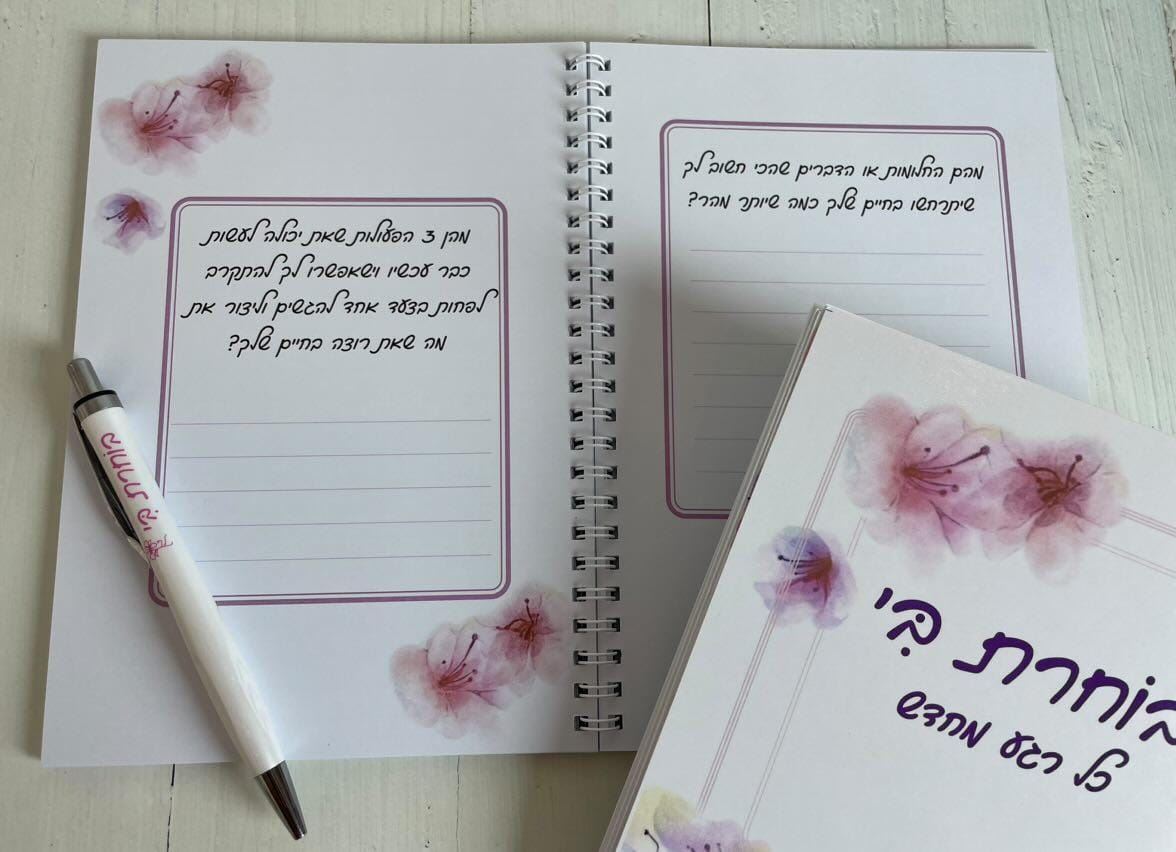 מהם החלומות או הדברים שהכי חשוב לך
שיתרחשו בחיים שלך כמה שיותר מהר?
מהן 3 הפעולות שאת יכולה לעשות
כבר עכשיו וישאפשרו לך להתקרב
לפחות בצעד אחד להגשים וליצור את
מה שאת רוצה בחיים שלך?
בוֹחרת בִּי
כל רגע מחדש